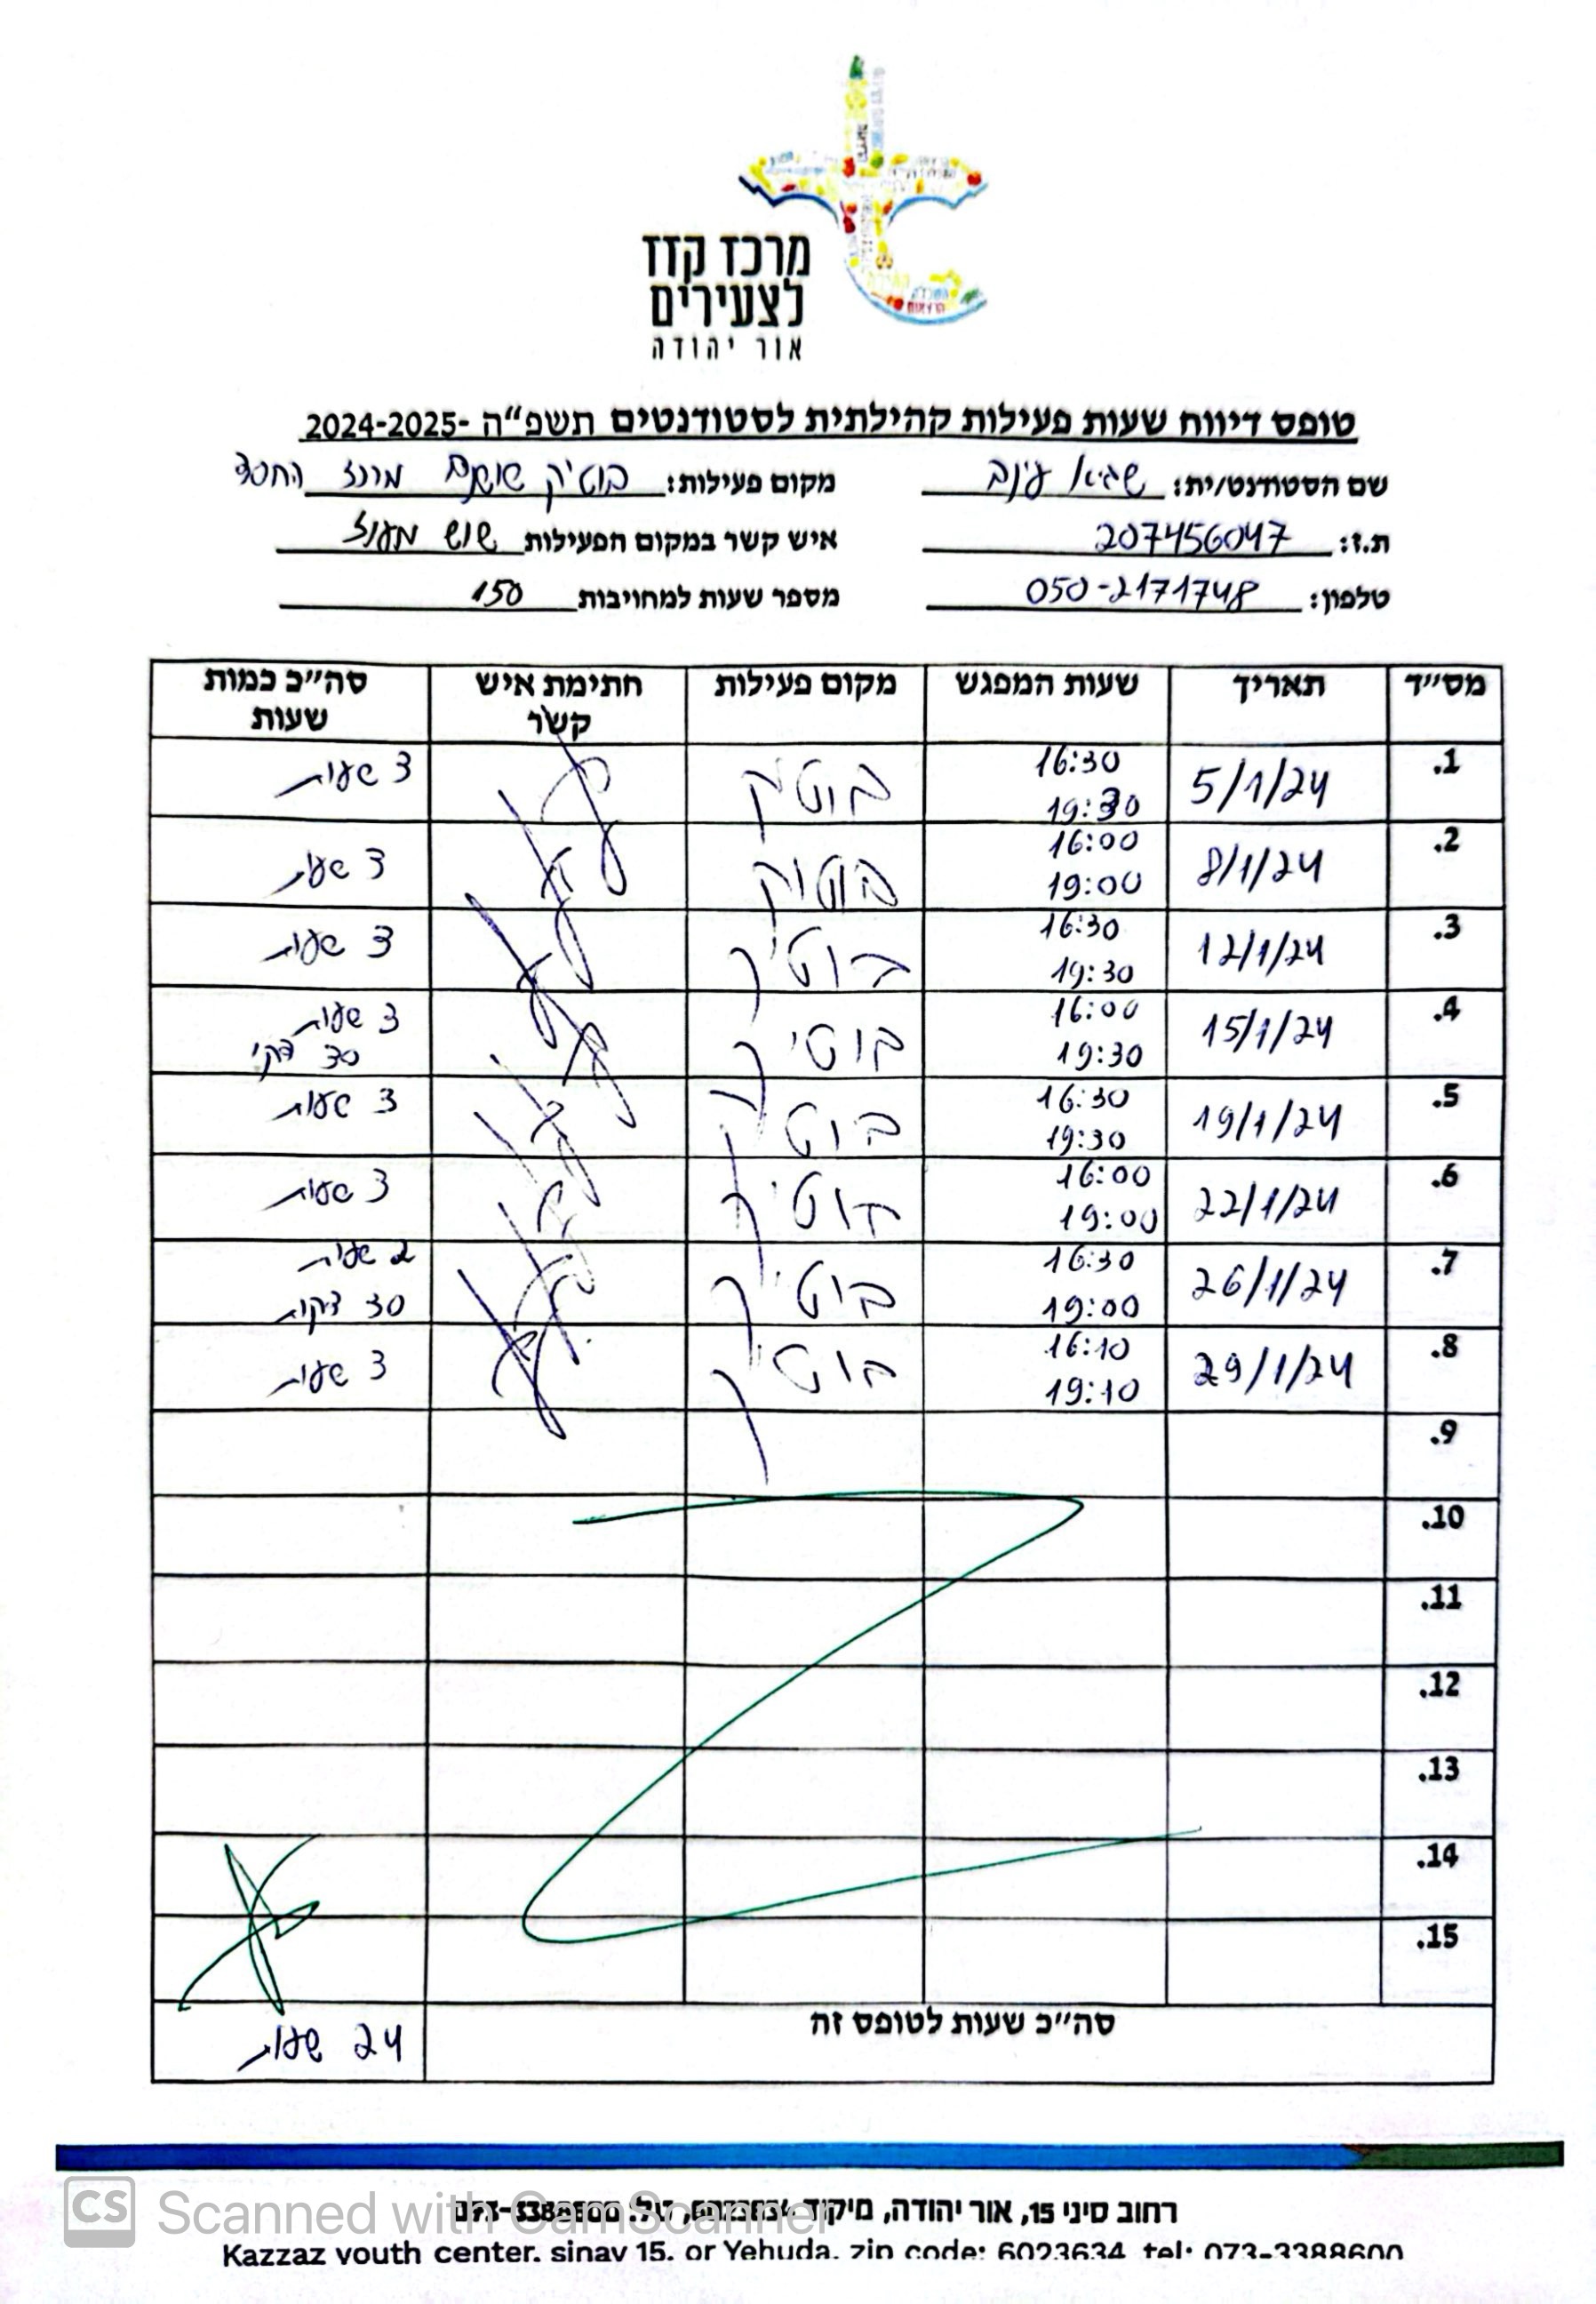 מרכז קזז
לצעירים
אור יהודה
טופס דיווח שעות פעילות קהילתית לסטודנטים תשפ"ה -2024-2025
שם הסטודנט/ית: שגיא עינב מקום פעילות: בוטיק שושנים מרכז החסד
ת.ז: 207456047 איש קשר במקום הפעילות שוש מעוז
טלפון: 050-2171748 מספר שעות למחויבות 150
מס"ד תאריך שעות המפגש מקום פעילות חתימת איש קשר סה"כ כמות שעות
.1 5/1/24 16:30 19:30 בוטיק 3 שעות
.2 8/1/24 16:00 19:00 בוטיק 3 שעות
.3 12/1/24 16:30 19:30 בוטיק 3 שעות
.4 15/1/24 16:00 19:30 בוטיק 3 שעות 30 דק'
.5 19/1/24 16:30 19:30 בוטיק 3 שעות
.6 22/1/24 16:00 19:00 בוטיק 3 שעות
.7 26/1/24 16:30 19:00 בוטיק 2 שעות 30 דקות
.8 29/1/24 16:10 19:10 בוטיק 3 שעות
.9
.10
.11
.12
.13
.14
.15
סה"כ שעות לטופס זה 24 שעות
רחוב סיני 15, אור יהודה, מיקוד טל. 073-3388600
Kazzaz youth center, sinay 15, or Yehuda, zip code: 6023634 tel: 073-3388600
CS Scanned with CamScanner